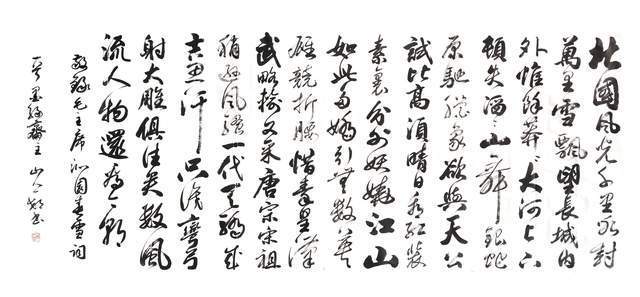 北國風光千里冰封
萬里雪飄望長城內
外惟餘莽莽大河上下
頓失滔滔山舞銀蛇
原馳蠟象欲與天公
試比高須晴日看紅裝
素裹分外妖嬈江山
如此多嬌引無數英
雄競折腰惜秦皇漢
武略輸文采唐宗宋祖
稍遜風騷一代天驕成
吉思汗只識彎弓
射大雕俱往矣數風
流人物還看今朝
敬錄毛主席沁園春雪詞
墨緣齋主